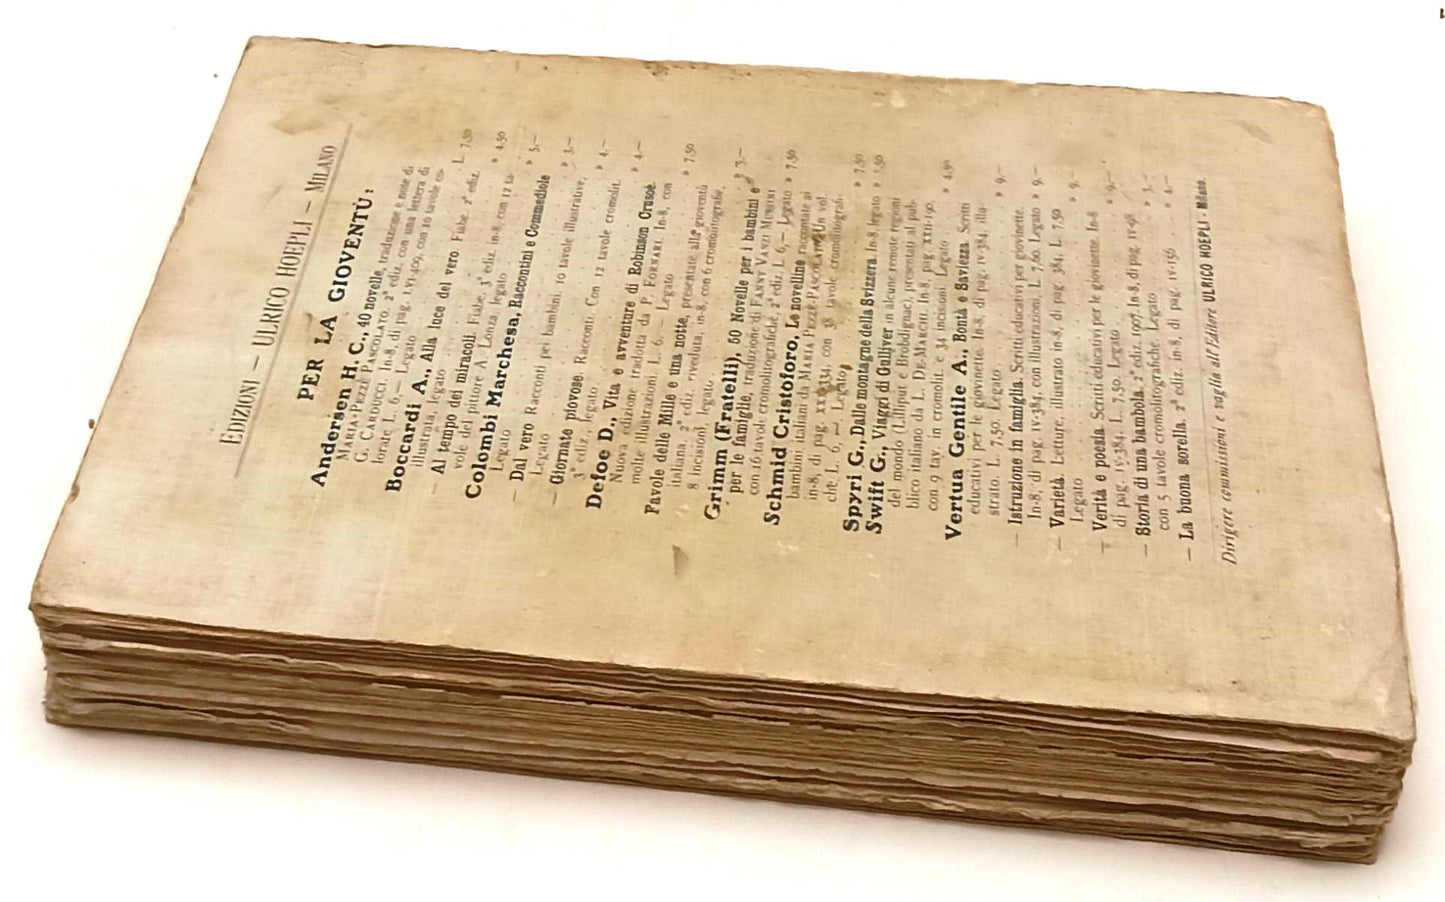 EDIZIONI — ULRICO HOEPLI — MILANO
PER LA GIOVENTÙ:
Andersen H. C., 40 novelle, traduzione e note di
MARIA PEZZÈ PASCOLATO, 2ª ediz. con una lettera di
G. CARDUCCI. In-8, di pag. XVI-409, con 10 tavole co-
lorate L. 6,— Legato . . . L. 7,50
Boccardi A., Alla luce del vero. Fiabe. 2ª ediz.
illustrata, legato . . . » 4,50
— Al tempo dei miracoli. Fiabe, 3ª ediz. in-8, con 12 ta-
vole del pittore A. Lonza, legato . . . » 5,—
Colombi Marchesa, Raccontini e Commediole
Legato . . . » 3,—
— Dal vero Racconti pei bambini. 10 tavole illustrative,
Legato . . . » 4,—
— Giornate piovose. Racconti. Con 12 tavole cromolit.
3ª ediz., legato . . . » 4,—
Defoe D., Vita e avventure di Robinson Crusoè.
Nuova edizione tradotta da P. FORNARI. In-8, con
molte illustrazioni. L. 6.— Legato . . . » 7,50
Favole delle Mille e una notte, presentate alla gioventù
italiana, 2ª ediz. riveduta, in-8, con 6 cromolitografie,
8 incisioni, legato . . . » 3,—
Grimm (Fratelli), 50 Novelle per i bambini e
per le famiglie, traduzione di FANNY VANZI MUSSINI
con 16 tavole cromolitografiche, 2ª ediz. L. 6,— Legato » 7,50
Schmid Cristoforo, Le novelline raccontate ai
bambini italiani da MARIA PEZZÈ-PASCOLATO. Un vol.
in-8, di pag. XX-334, con 38 tavole cromolitografi-
che L. 6, —. Legato . . . » 7,50
Spyri G., Dalle montagne della Svizzera. In-8, legato » 3,50
Swift G., Viaggi di Gulliver in alcune remote regioni
del mondo (Lilliput e Brobdignac), presentati al pub-
blico italiano da L. DE MARCHI. In-8, pag. XXII-190,
con 9 tav. in cromolit. e 34 incisioni. Legato . . . » 4,50
Vertua Gentile A., Bontà e Saviezza. Scritti
educativi per le giovinette. In-8, di pag. IV-384, illu-
strato. L. 7,50. Legato . . . » 9.—
— Istruzione in famiglia. Scritti educativi per giovinette.
In-8, di pag. IV-384, con illustrazioni, L. 7,60 Legato » 9.—
— Varietà. Letture, illustrato in-8, di pag 384. L. 7,50
Legato . . . » 9.—
— Verità e poesia. Scritti educativi per le giovinette. In-8
di pag. IV-384. L. 7,50. Legato . . . » 9.—
— Storia di una bambola. 2ª ediz. 1907. In-8, di pag. IV-198
con 5 tavole cromolitografiche. Legato . . . » 3.—
— La buona sorella. 2ª ediz. in-8, di pag. IV-156 . . . » 4.—
Dirigere commissioni e vaglia all'Editore ULRICO HOEPLI - Milano.